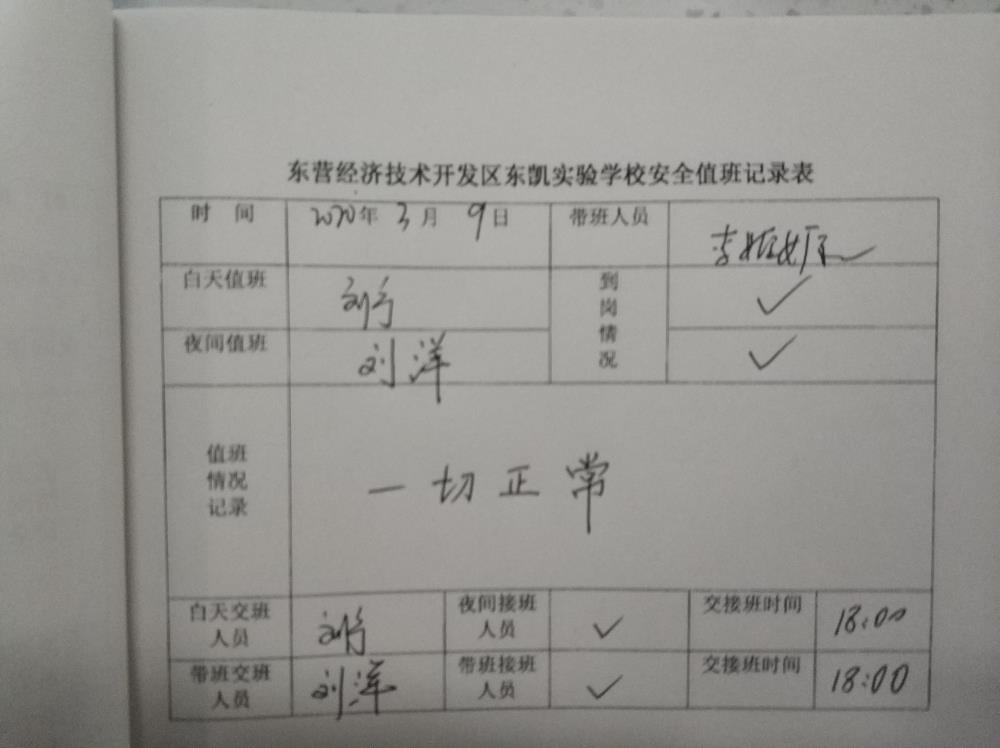 东营经济技术开发区东凯实验学校安全值班记录表
时 间 2020年 3月 9日 带班人员
白天值班 刘 到岗情况 ✓
夜间值班 刘洋 ✓
值班情况记录 一切正常
白天交班人员 刘 夜间接班人员 ✓ 交接班时间 18:00
带班交班人员 刘洋 带班接班人员 ✓ 交接班时间 18:00